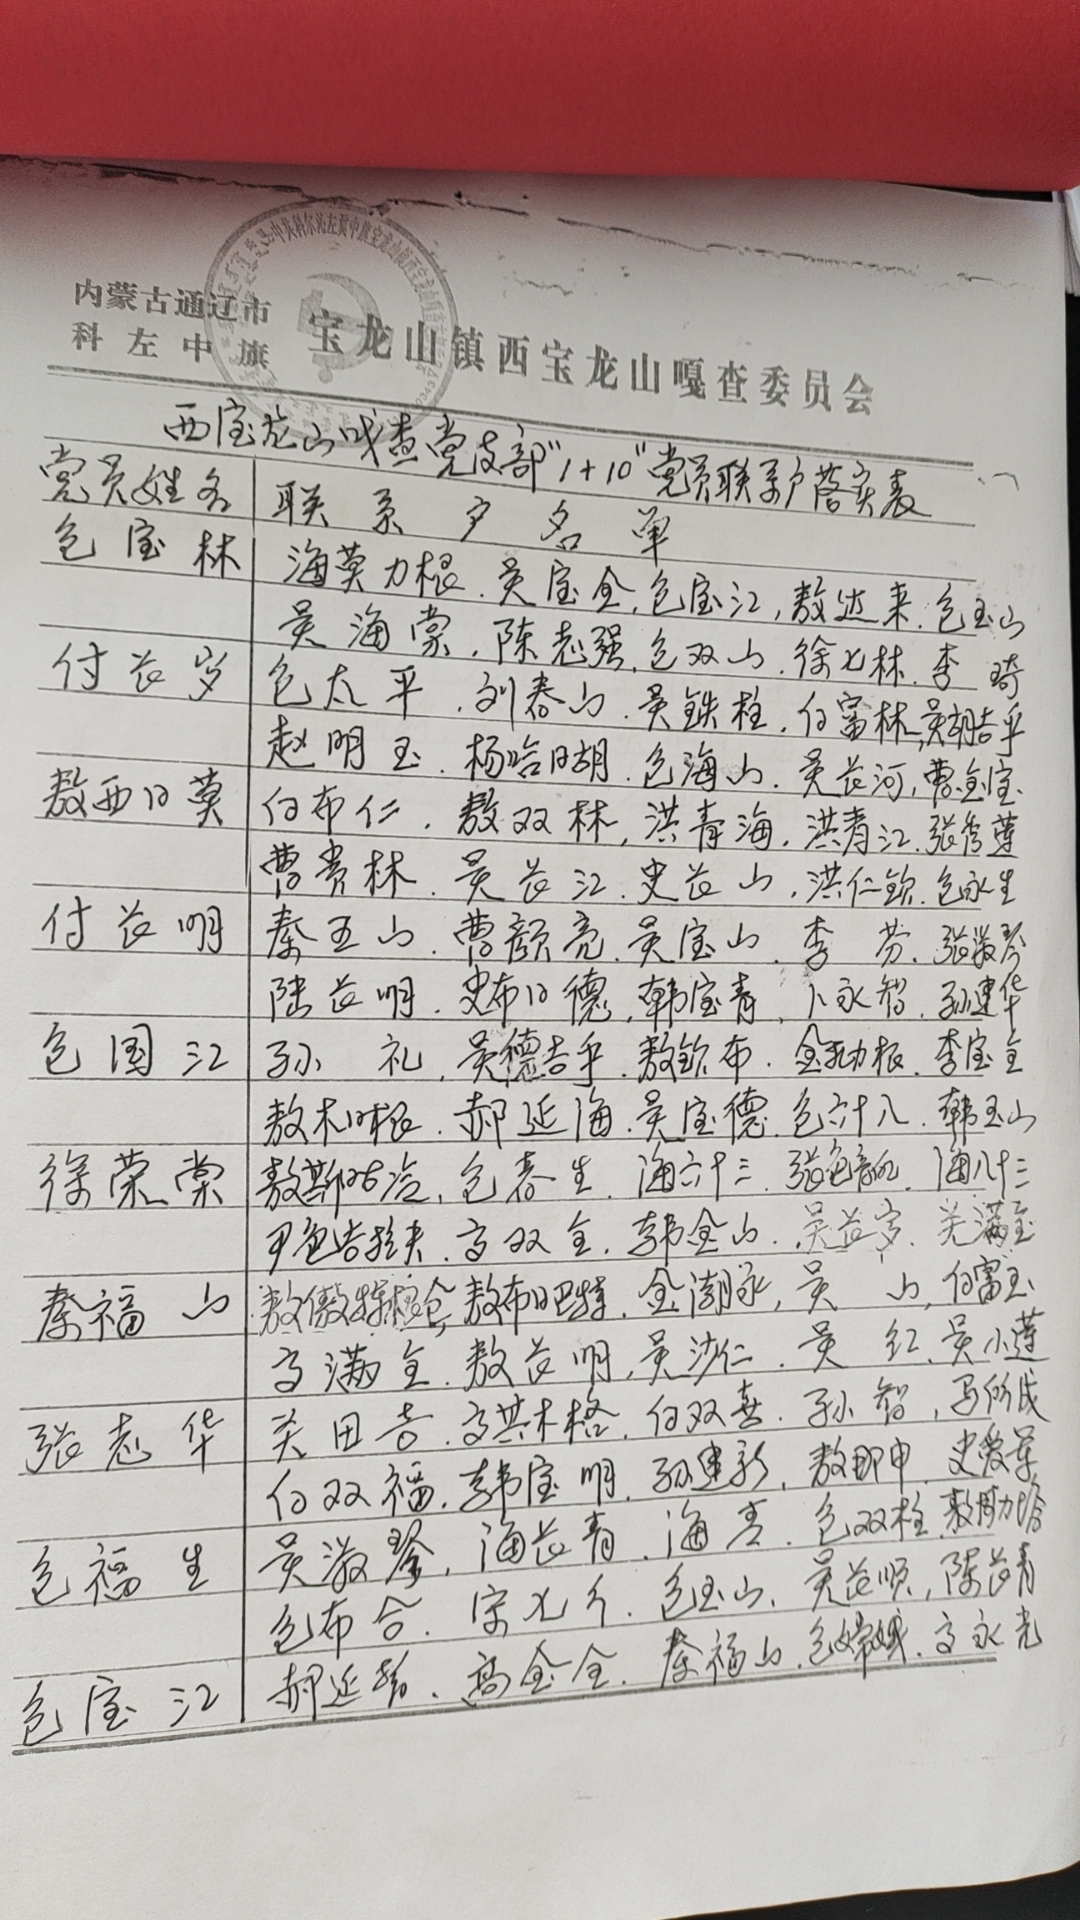 中共科尔沁左翼中旗宝龙山镇西宝龙山嘎查
内蒙古通辽市
科左中旗
宝龙山镇西宝龙山嘎查委员会
西宝龙山嘎查党支部"1+10"党员联系户落实表
党员姓名 联系户名单
包宝林 海莫力根.吴宝金.包宝江,敖达来.包玉山
吴海棠.陈志强.包双山.徐七林.李琦
付长岁 包太平.刘春山.吴铁柱.白富林.吴胡吉乎
赵明玉.杨哈日胡.包海山.吴长河,曹金宝
敖西日莫 白布仁.敖双林,洪青海.洪青江.张秀莲
曹贵林.吴长江.史长山.洪仁钦.包永生
付长明 秦玉山.曹颜亮.吴宝山.李芬.张淑琴
陆长明.史布日德.韩宝青.卜永智.孙建华
包国江 孙礼.吴德吉乎.敖钦布.李宝全
郝延海.吴宝德.包六十八.韩玉山
徐荣棠 包春生.海六十三.海八十三
高双全.韩金山.吴长岁.关满金
秦福山 敖布日巴特.金湖永,吴山,白富玉
高满全.敖长明,吴沙仁.吴红.吴小莲
张志华 关田吉.高其木格.白双喜.孙智,马所成
白双福.韩宝明.孙建新,敖那申.史爱军
包福生 吴淑琴,海长青.海青.包双柱.
包布合.包玉山.吴长顺,陈长青
包宝江 郝延哲.高金全.秦福山.包嫦娥.高永光